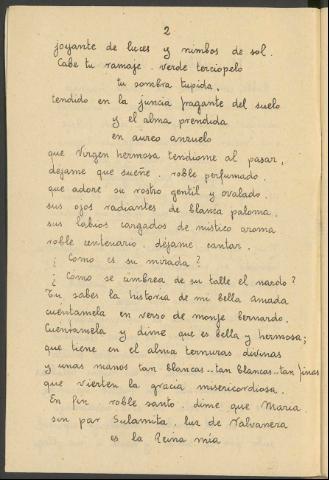 2
joyante de luces y nimbos de sol.
Cabe tu ramaje verde terciopelo
tu sombra tupida,
tendido en la juncia fragante del suelo
y el alma prendida
en aureo anzuelo
que Virgen hermosa tendiome al pasar,
dejame que sueñe, roble perfumado,
que adore su rostro gentil y ovalado,
sus ojos radiantes de blanca paloma,
sus labios cargados de mistico aroma
roble centenario, déjame cantar.
¿Como es su mirada?
¿Como se cimbrea de su talle el nardo?
Tu sabes la historia de mi bella amada
cuéntamela en verso de monje bernardo.
Cuentamela y dime que es bella y hermosa;
que tiene en el alma ternuras divinas
y unas manos tan blancas..tan blancas..tan finas
que vierten la gracia misericordiosa.
En fin, roble santo, dime que Maria
sin par Sulamita, luz de Valvanera
es la Reina mia